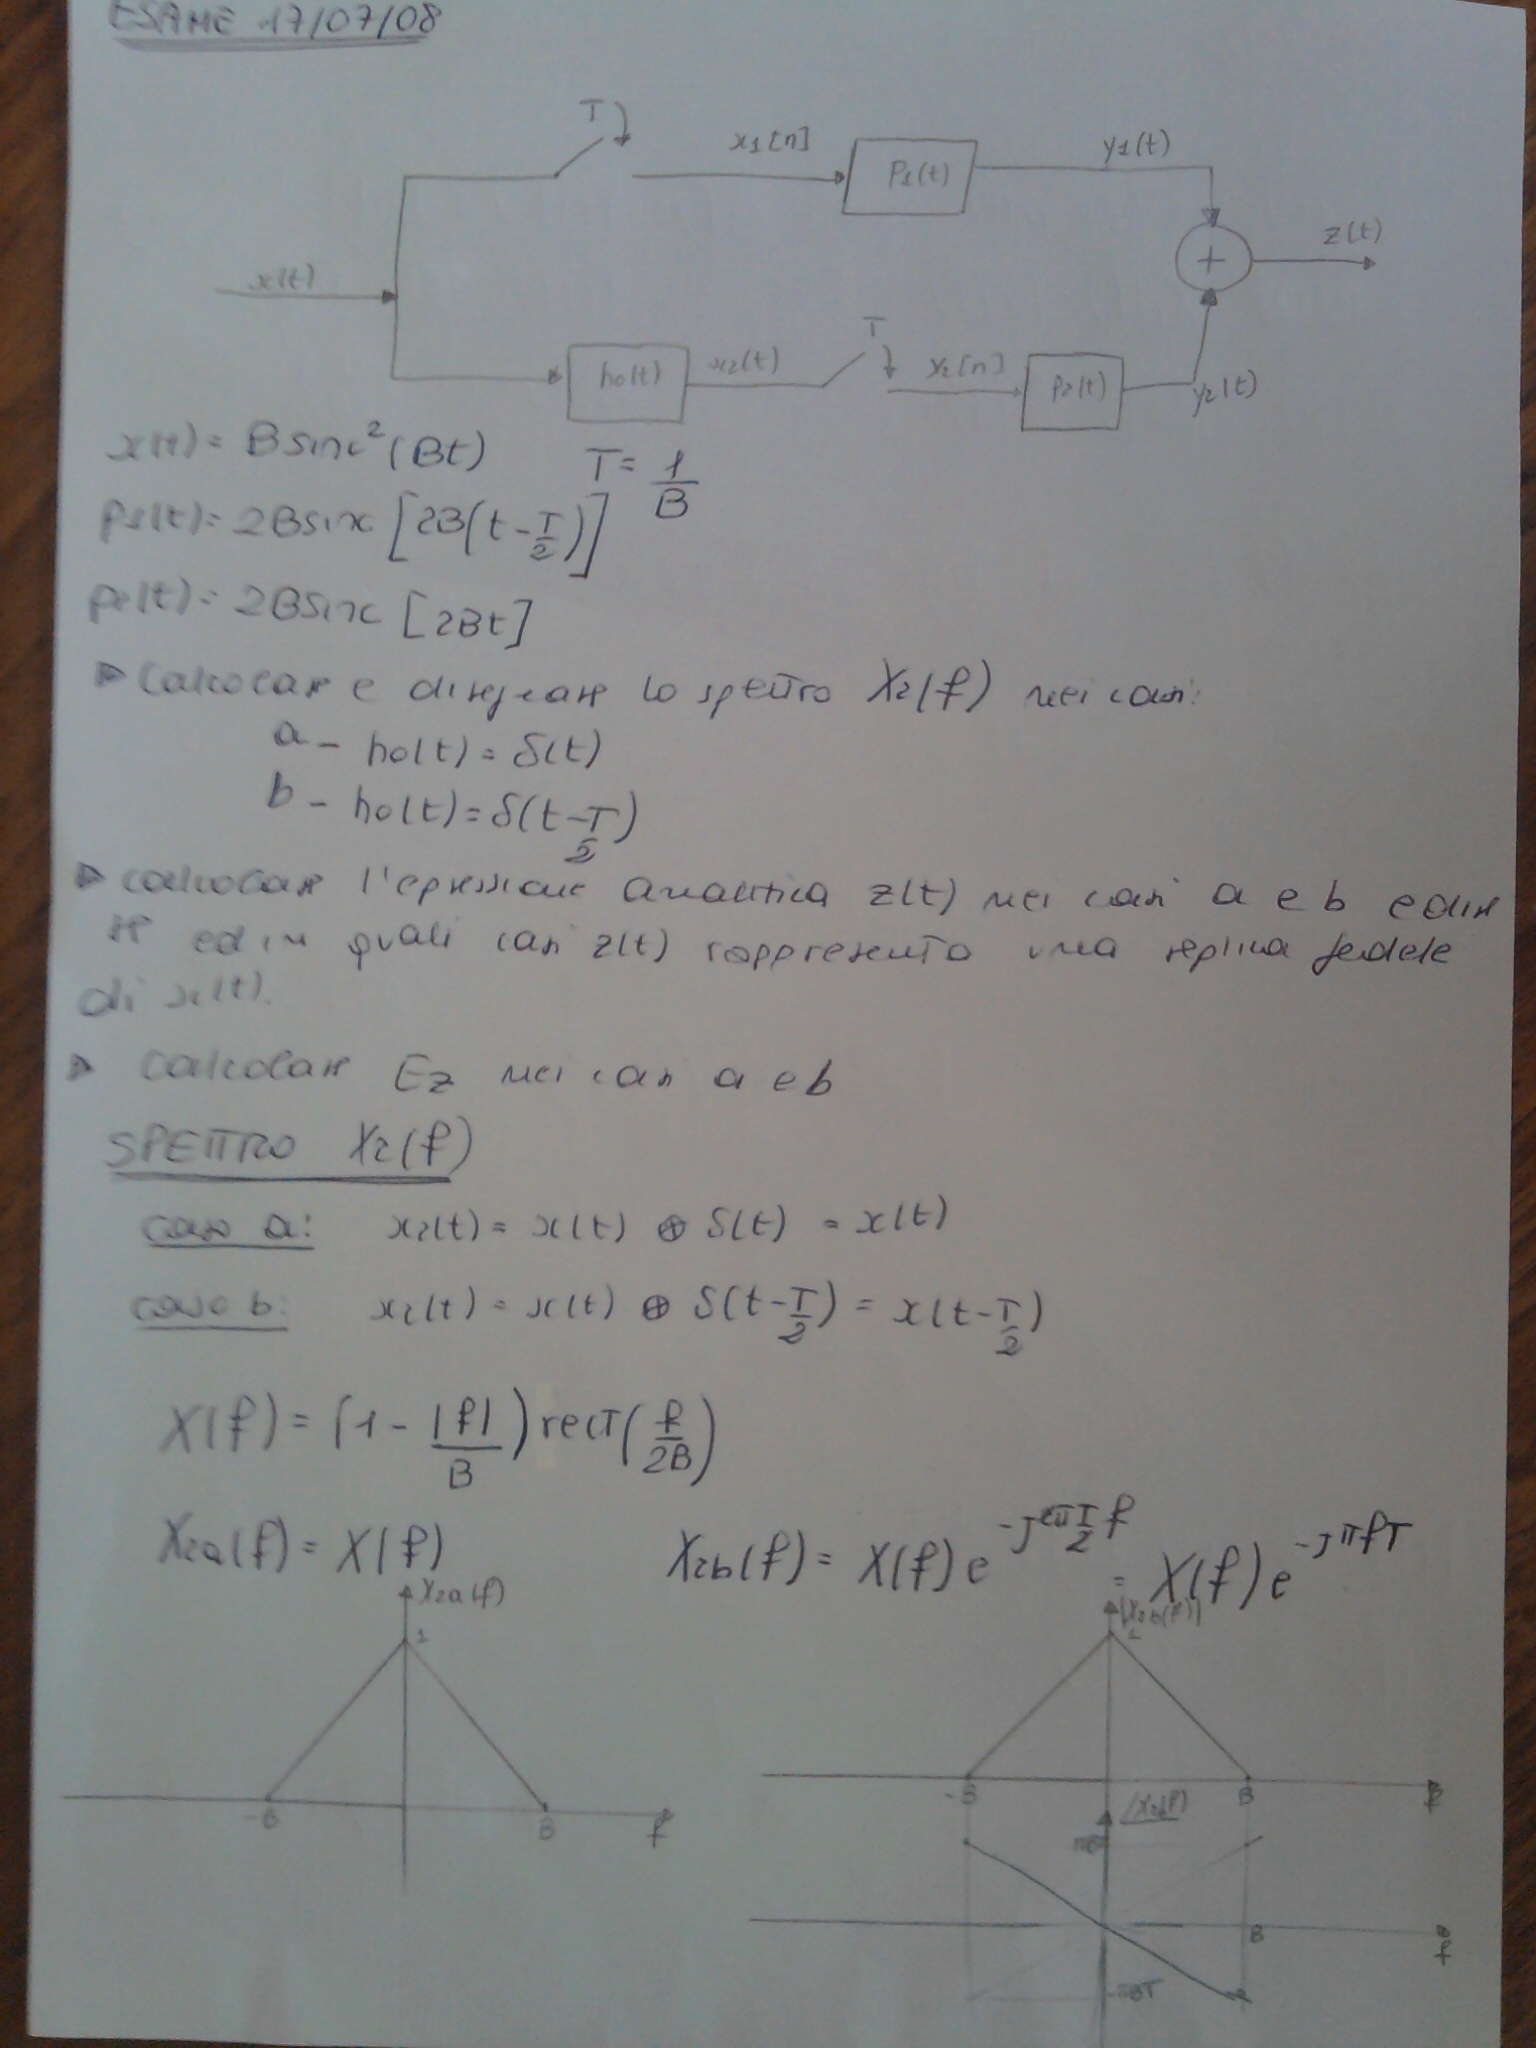 ESAME 17/07/08
T
x1[n]
P1(t)
y1(t)
x(t)
+
z(t)
h0(t)
x2(t)
T
x2[n]
P2(t)
y2(t)
x(t) = B sinc²(Bt) T = 1/B
p1(t) = 2B sinc [2B(t - T/2)]
p2(t) = 2B sinc [2Bt]
▷ calcolare e disegnare lo spettro X2(f) nei casi:
a - h0(t) = δ(t)
b - h0(t) = δ(t - T/2)
▷ calcolare l'espressione analitica z(t) nei casi a e b e dire
se ed in quali casi z(t) rappresenta una replica fedele
di x(t).
▷ calcolare Ez nei casi a e b
SPETTRO X2(f)
caso a: x2(t) = x(t) ⊗ δ(t) = x(t)
caso b: x2(t) = x(t) ⊗ δ(t - T/2) = x(t - T/2)
X(f) = (1 - |f|/B) rect(f/2B)
X2a(f) = X(f) X2b(f) = X(f) e^-j2π T/2 f = X(f) e^-jπfT
X2a(f) |X2b(f)|
1 1
-B B f -B B f
∠X2(f)
πBT
B f
-πBT